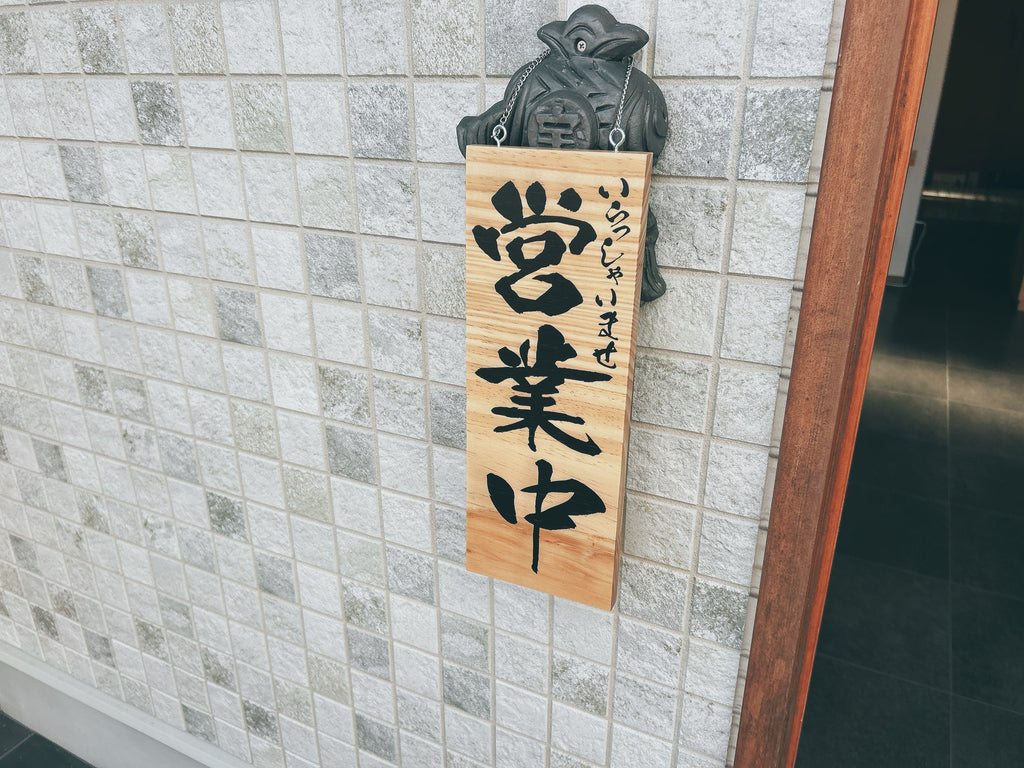 いらっしゃいませ
営業中
宝